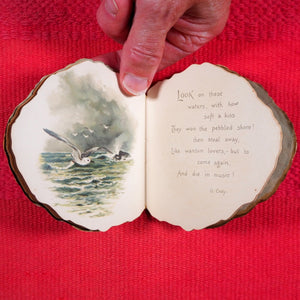 Look on these
waters, with how
soft a kiss
They woo the pebbled shore!
then steal away,
Like wanton lovers,–but to
come again,
And die in music!